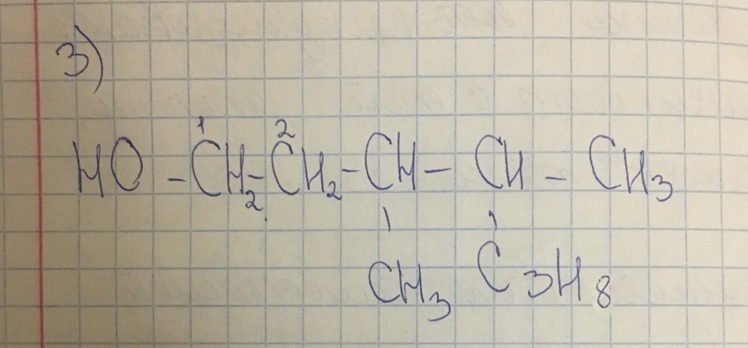 3)
1 2
HO - CH2 - CH2 - CH - CH - CH3
CH3 C3H8